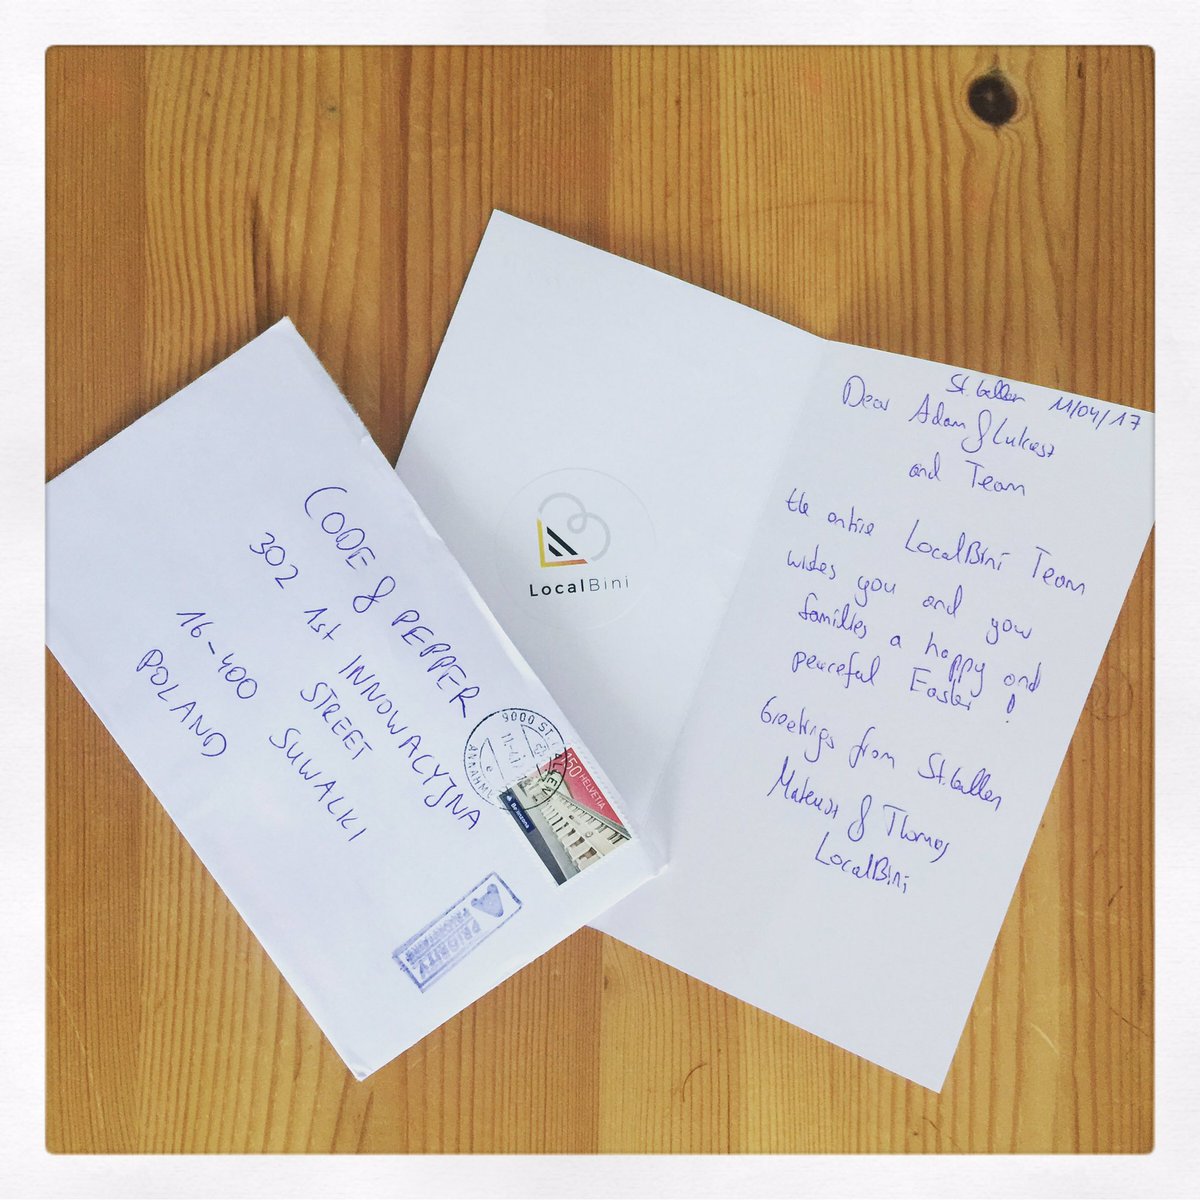 CODE & PEPPER
302 1st INNOWACYJNA
STREET
16-400 SUWALKI
POLAND
9000 ST. GALLEN
ANNAHME
150 HELVETIA
Bellinzona
PRIORITY
PRIORITAIRE
LocalBini
St. Gallen 11/04/17
Dear Adam & Lukasz
and Team
the entire LocalBini Team
wishes you and your
families a happy and
peaceful Easter!
Greetings from St. Gallen
Mateusz & Thomas
LocalBini